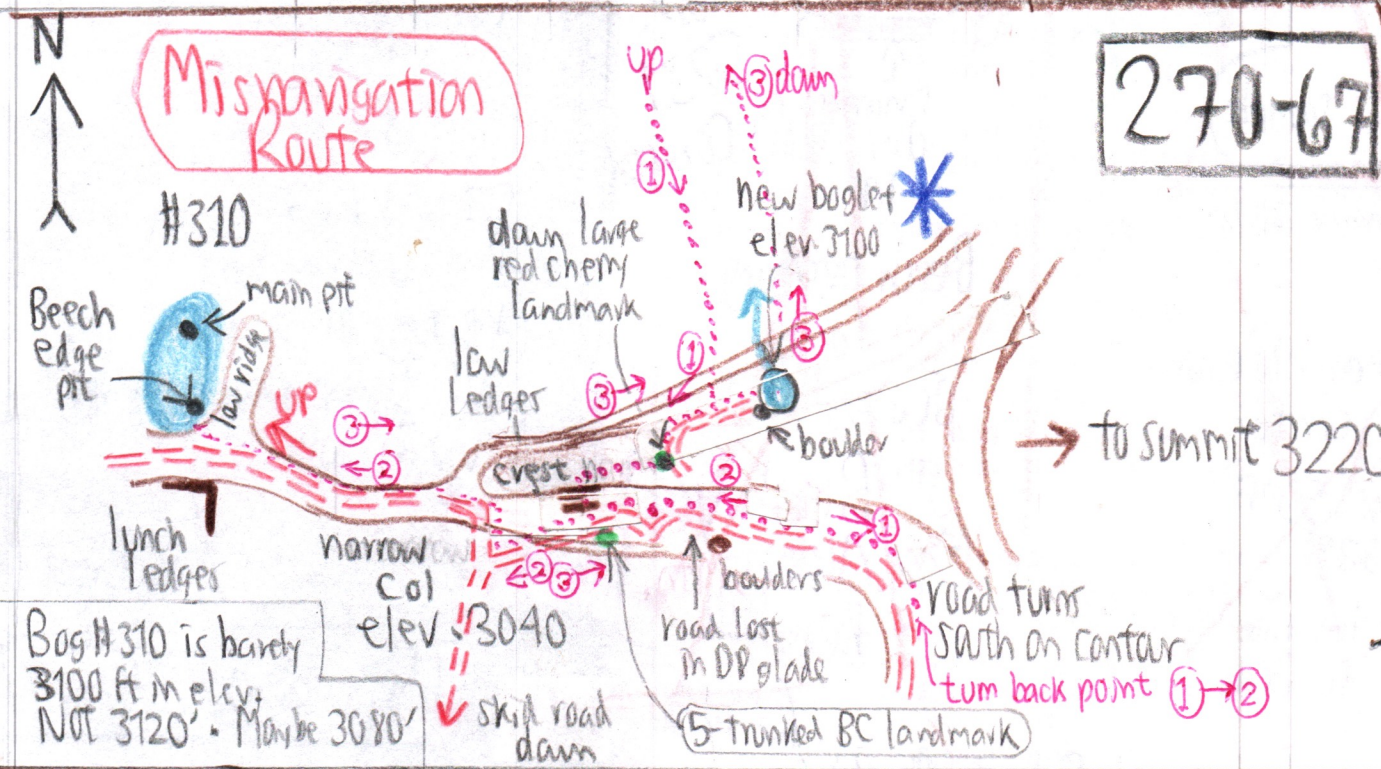 N
Misnavigation
Route
270-67
#310
up
③ down
①
new boglet
elev. 3100
down large
red cherry
landmark
Beech
edge
pit
main pit
low ridge
low
ledges
UP
③
②
③
①
③
boulder
to summit 3220
crest
②
①
lunch
ledges
narrow
col
elev. 3040
② ③
boulders
road lost
in DP glade
road turns
south on contour
turn back point ① → ②
Bog #310 is barely
3100 ft in elev.
NOT 3120'. Maybe 3080'
skid road
down
5-trunked BC landmark